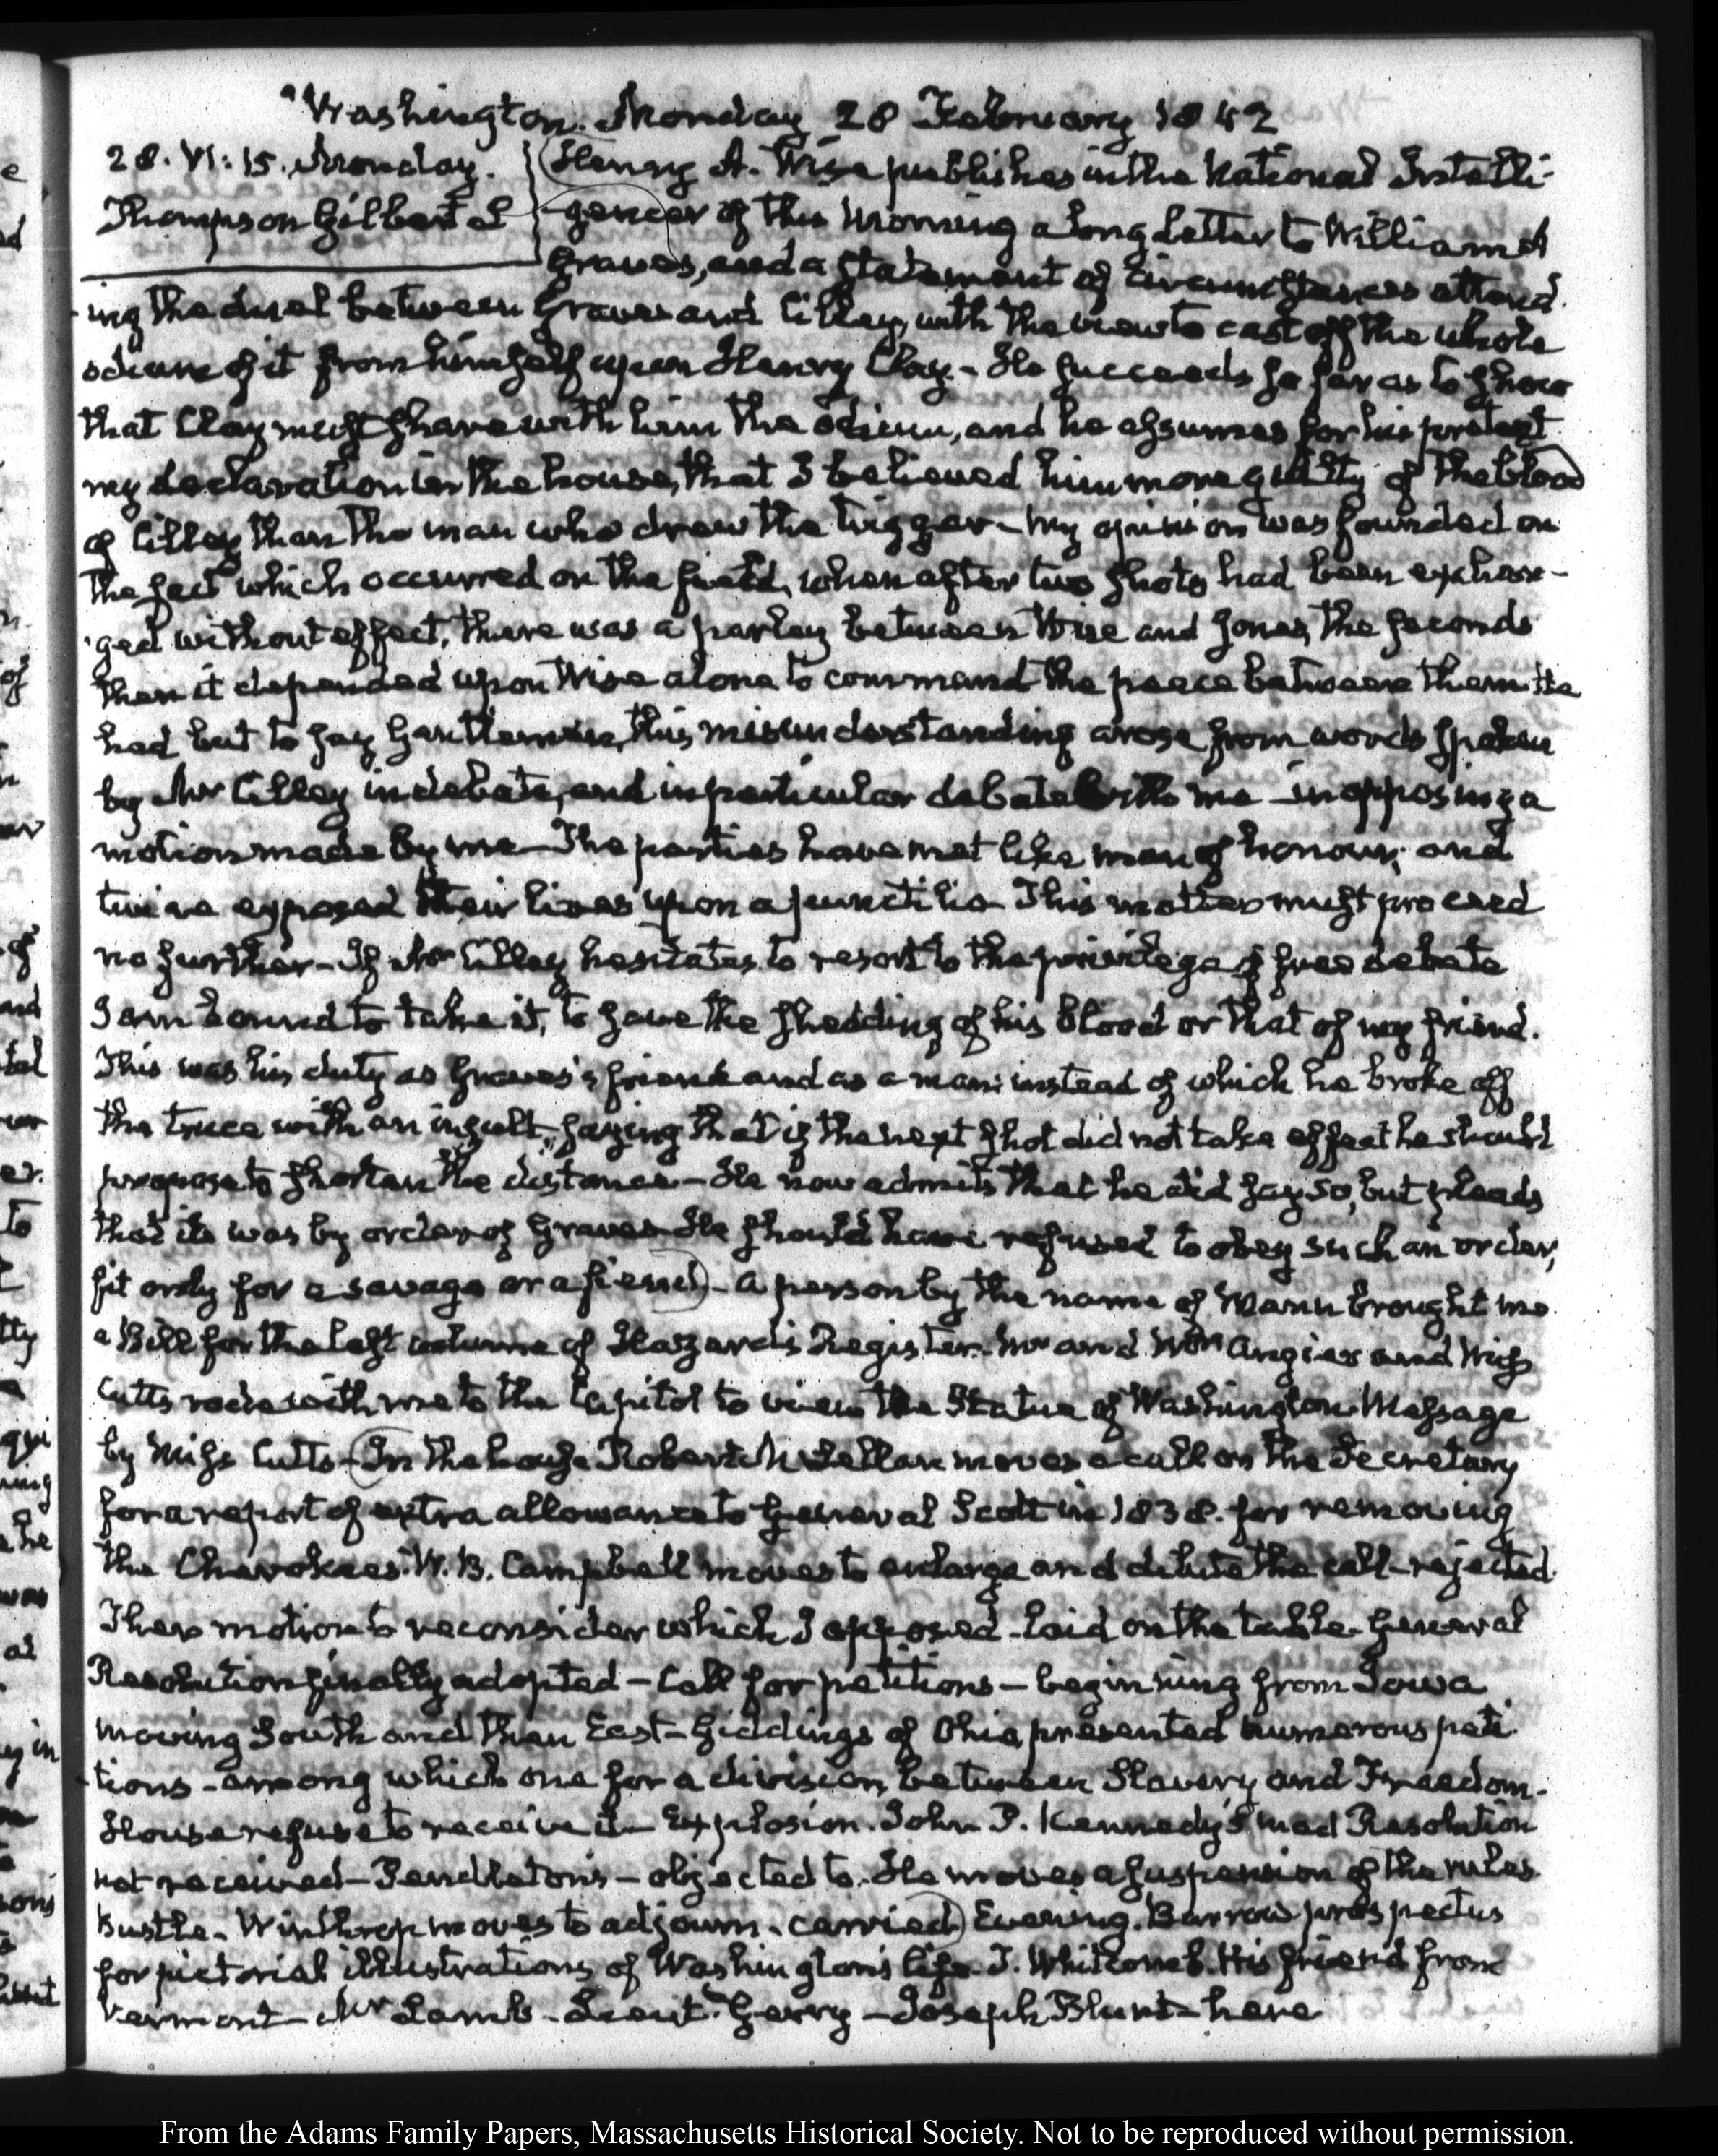 Washington. Monday 28 February 1842
28. VI:15. Monday.
Thompson Gilbert L
Henry A. Wise publishes in the National Intelli-
-gencer of this morning a long Letter to William J
Graves, and a statement of circumstances attend-
-ing the duel between Graves and Cilley, with the view to cast off the whole
odium of it from himself upon Henry Clay. He succeeds so far as to show
that Clay must share with him the odium, and he assumes for his pretext
my declaration in the house, that I believed him more guilty of the blood
of Cilley than the man who drew the trigger - My opinion was founded on
the fact which occurred on the field, when after two shots had been exchan-
-ged without effect, there was a parley between Wise and Jones, the seconds
then it depended upon Wise alone to command the peace between them. He
had but to say Gentlemen, this misunderstanding arose from words spoken
by Mr Cilley in debate, and in particular debate with me - in opposing a
motion made by me - The parties have met like men of honour; and
twice exposed their lives upon a punctilio - This matter must proceed
no further - If Mr Cilley hesitates to resort to the privilege of free debate
I am bound to take it, to save the shedding of his blood or that of my friend.
This was his duty as Graves's friend and as a man: instead of which he broke off
the truce with an insult, saying that if the next shot did not take effect he should
propose to shorten the distance - He now admits that he did say so, but pleads
that it was by order of Graves - He should have refused to obey such an order,
fit only for a savage or a fiend) - A person by the name of Mann brought me
a Bill for the last volume of Hazard's Register. Mr and Mrs Angier and Miss
Cutts rode with me to the Capitol to view the Statue of Washington. Message
by Miss Cutts - (In the house Robert McClellan moves a call on the Secretary
for a report of extra allowance to General Scott in 1838. for removing
the Cherokees. W. B. Campbell moves to enlarge and dilute the call - rejected
Then motion to reconsider which I opposed - laid on the table. General
Resolution finally adopted - Call for petitions - beginning from Iowa
moving South and then East - Giddings of Ohio presented numerous peti-
-tions - among which one for a division between Slavery and Freedom.
House refuse to receive it - Explosion. John P. Kennedy's mad Resolution
not received - Pendleton's - objected to. He moves a suspension of the rules
Bustle. Winthrop moves to adjourn. carried) Evening. Barrow prospectus
for pictorial illustrations of Washington's life. J. Whitcomb. His friend from
Vermont - Mr Lamb - Lieut. Gerry - Joseph Blunt - here
From the Adams Family Papers, Massachusetts Historical Society. Not to be reproduced without permission.